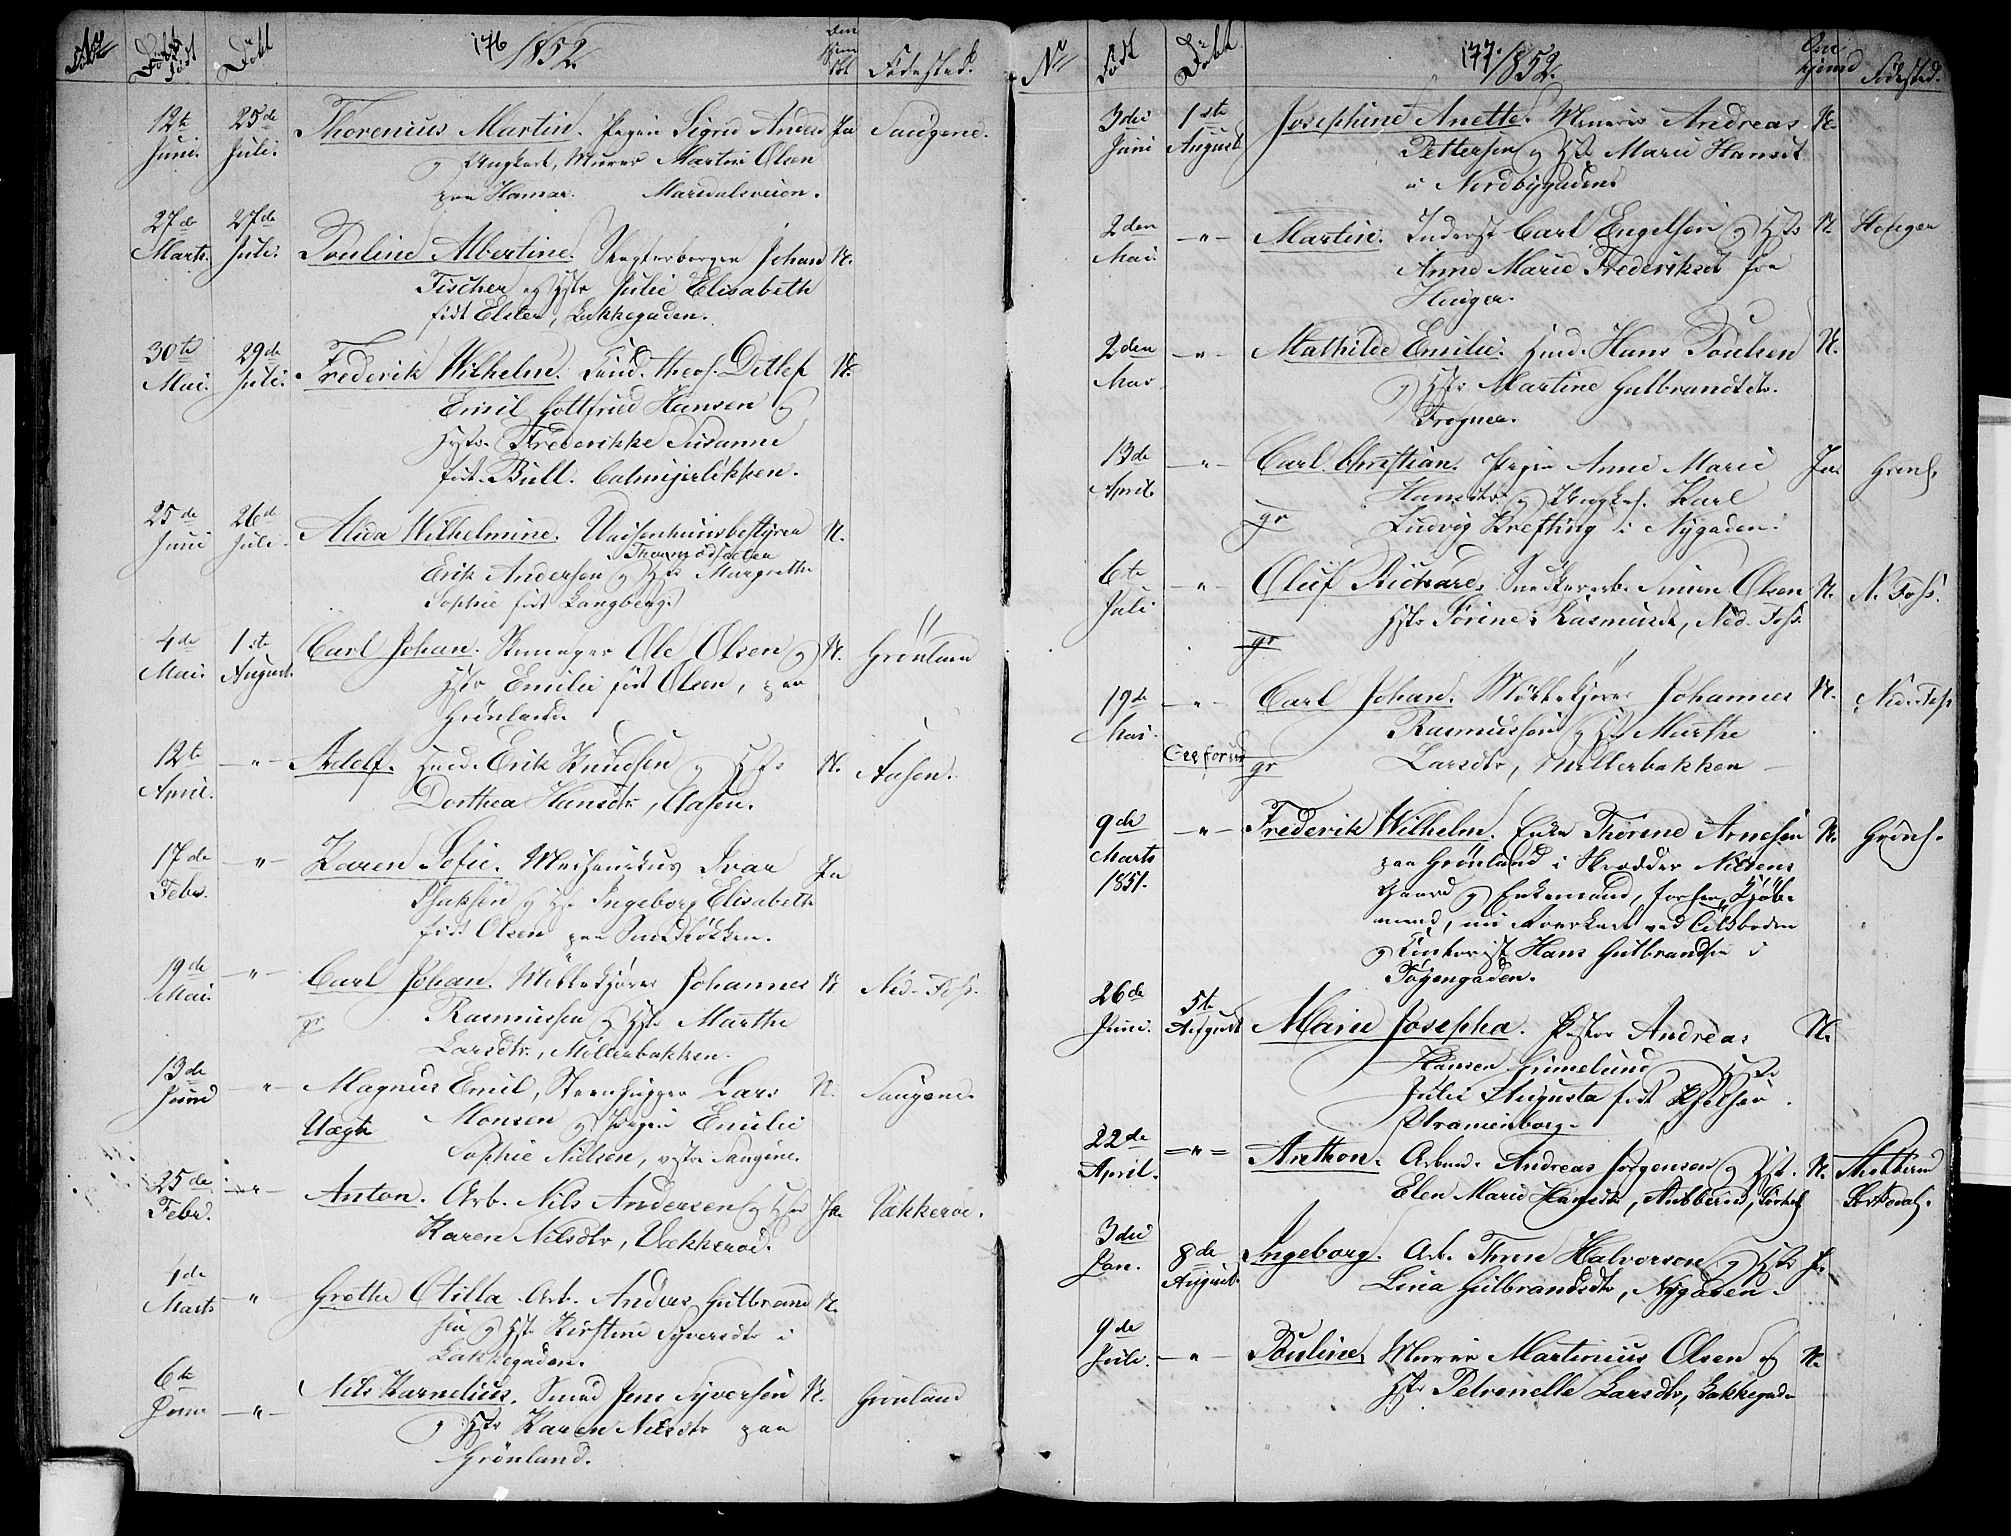 No
Født
Døbt
176
1852.
Fødested.
12te
Juni.
25de
Juli.
Thorenius Martin. Pigen Sigrid Anders
og Ungkarl, Murer Martin Olsen
paa Hamar. Maridalsveien.
Ja
Saugene.
27de
Marts.
27de
Juli.
Pouline Albertine. Johan
Fischer og Hstr Julie Elisabeth
født Elster, Lakkegaden.
N.
30te
Mai.
29de
Juli.
Frederik Wilhelm. Cand. theol. Ditlef
Emil Gottfried Hansen og
Hstr. Frederikke Susanne
født Bull.
N.
25de
Juni
26de
Juli.
Alida Wilhelmine. Vaisenhuusbestyrer
Erik Andersen og Hstr Margrethe
Sophie født Langberg
N.
4de
Mai.
1ste
August.
Carl Johan. Ole Olsen og
Hstr Emilie født Olsen, paa
Grønland.
N.
Grønland
12te
April.
—"—
Adolf. Huusm. Erik Knudsen og Hstr
Dorthea Hansdtr, Aasen.
N.
Aasen.
17de
Febr.
—"
Karen Sofie. Mechanikus Ivar
og Hstr Ingeborg Elisabeth
født Olsen paa Smedløkken.
Ja
19de
Mai.
—"—
Carl Johan. Møllekjører Johannes
gr Rasmussen og Hstr Marthe
Larsdtr., Møllerbakken.
N.
Ned. Foss.
13de
Juni
—"—
Magnus Emil, Steenhugger Lars
Uægte Monsen og Pigen Emilie
Sophie Nielsen, Saugene.
N.
Saugene.
25de
Febr.
—"—
Anton. Arb. Nils Andersen og Hstr
Karen Nilsdtr, Vækkerøe.
Ja
Vækkerøe.
4de
Marts
—"
Grethe Otilla. Arb. Anders Gulbrand
sen og Hstr Kirstine Syversdtr i
Lakkegaden.
N.
6te
Juni
—"—
Nils Karnelius. Smed Jens Syversen
og Hstr Karen Nilsdtr paa
Grønland.
N.
Grønland
No
Født
Døbt
177.
1852.
Om
hjemd
Fødested.
3die
Juni
1ste
August
Josephine Anette. Murer Andreas
Pettersen og Hstr Marie Hansdt
i Nordbygaden
N.
2den
Mai.
—"—
Martin. Inderst Carl Engelsen og Hstr
Anne Marie Frederiksdt
N
2den
Mai
—"—
Mathilde Emilie. Huusm. Hans Poulsen
og Hstr Martine Gulbrandsdtr.
Frogner.
N.
13de
April
—"—
Carl Christian. Pigen Anne Marie
Hansdtr og Ungkarl. Karl
gr Ludvig Krefting i Nygaden.
Ja.
Grønl.
6te
Juli
—"
Oluf Richard. Snedkersv. Simen Olsen
Hstr Sørine Rasmusdt, Ned. Foss.
gr
N.
N. Foss.
19de
Mai.
—"—
Carl Johan. Møllekjører Johannes
Rasmussen og Hstr Marthe
gr Larsdtr, Møllerbakken —
N.
Ned. Foss
9de
Marts
1851.
—"—
Frederik Wilhelm. Enke Thorine Arnesen
paa Grønland i Skrædder Nielsens
Gaard og Enkemand, forhen Kjøb-
mand, nu ved Toldboden
og Kontorist Hans Gulbrandsen i
Tøyengaden.
N.
Grønl.
26de
Juni.
5te
August
Marie Josepha. Pastor Andreas
Hansen Grimelund og Hstr
Julie Augusta født
Uranienborg.
N.
22de
April.
—"—
Anthon. Arbmd. Andreas Jørgensen og Hst.
Elen Marie Hansdtr,
N.
3die
Jan.
8de
August.
Ingeborg. Arb. Thron Halvorsen og Hstr
Lina Gulbrandsdtr, Nygaden.
Ja
9de
Juli.
—"—
Pouline, Murer Martinius Olsen og
Hstr Petronelle Larsdtr, Lakkegad
N.